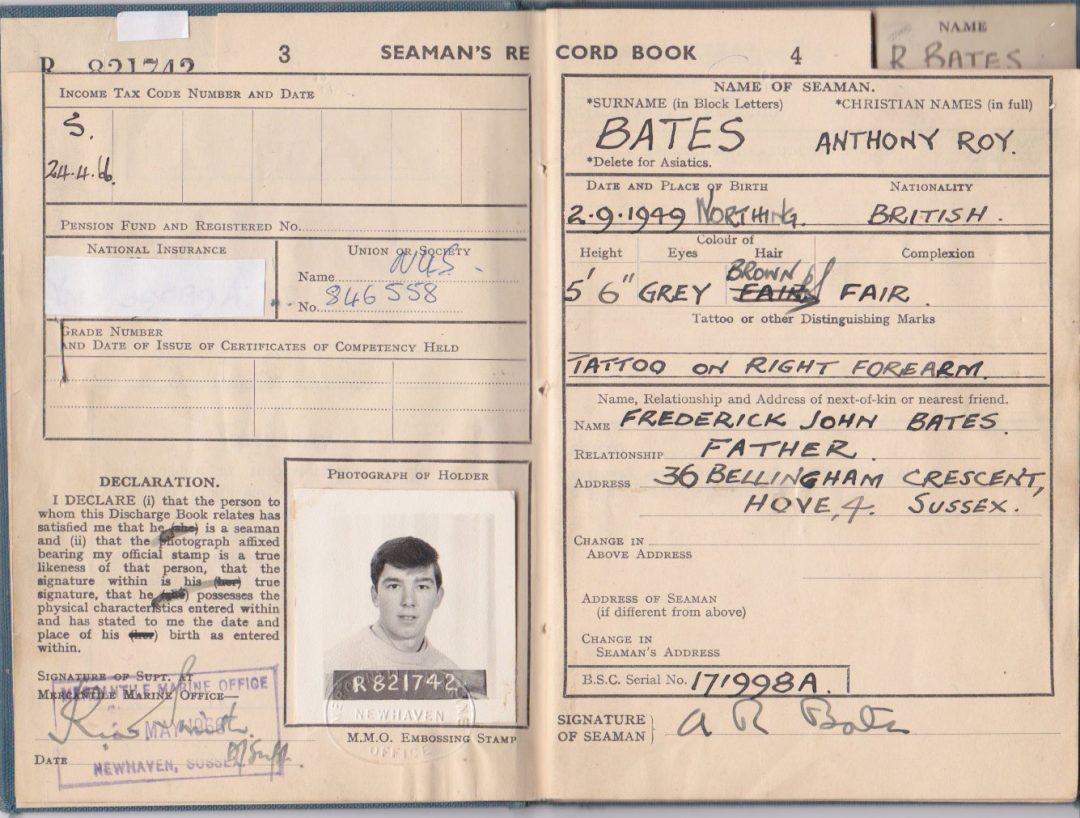 R 821742
3
SEAMAN'S RECORD BOOK
4
NAME
R BATES
INCOME TAX CODE NUMBER AND DATE
S.
24.4.66.
PENSION FUND AND REGISTERED No.
NATIONAL INSURANCE
UNION OR SOCIETY
Name NUS.
No. 846558
GRADE NUMBER
AND DATE OF ISSUE OF CERTIFICATES OF COMPETENCY HELD
DECLARATION.
I DECLARE (i) that the person to
whom this Discharge Book relates has
satisfied me that he (she) is a seaman
and (ii) that the photograph affixed
bearing my official stamp is a true
likeness of that person, that the
signature within is his (her) true
signature, that he (she) possesses the
physical characteristics entered within
and has stated to me the date and
place of his (her) birth as entered
within.
SIGNATURE OF SUPT. AT
MERCANTILE MARINE OFFICE
MERCANTILE MARINE OFFICE
MAY 1966
NEWHAVEN, SUSSEX.
DATE
PHOTOGRAPH OF HOLDER
R821742
NEWHAVEN
OFFICE
M.M.O. EMBOSSING STAMP
NAME OF SEAMAN.
*SURNAME (in Block Letters) *CHRISTIAN NAMES (in full)
BATES ANTHONY ROY.
*Delete for Asiatics.
DATE AND PLACE OF BIRTH NATIONALITY
2.9.1949 WORTHING. BRITISH.
Colour of
Height Eyes Hair Complexion
BROWN
5' 6" GREY FAIR FAIR.
Tattoo or other Distinguishing Marks
TATTOO ON RIGHT FOREARM.
Name, Relationship and Address of next-of-kin or nearest friend.
NAME FREDERICK JOHN BATES.
RELATIONSHIP FATHER.
ADDRESS 36 BELLINGHAM CRESCENT,
HOVE, 4. SUSSEX.
CHANGE IN
ABOVE ADDRESS
ADDRESS OF SEAMAN
(if different from above)
CHANGE IN
SEAMAN'S ADDRESS
B.S.C. Serial No. 171998A.
SIGNATURE OF SEAMAN } A R Bates